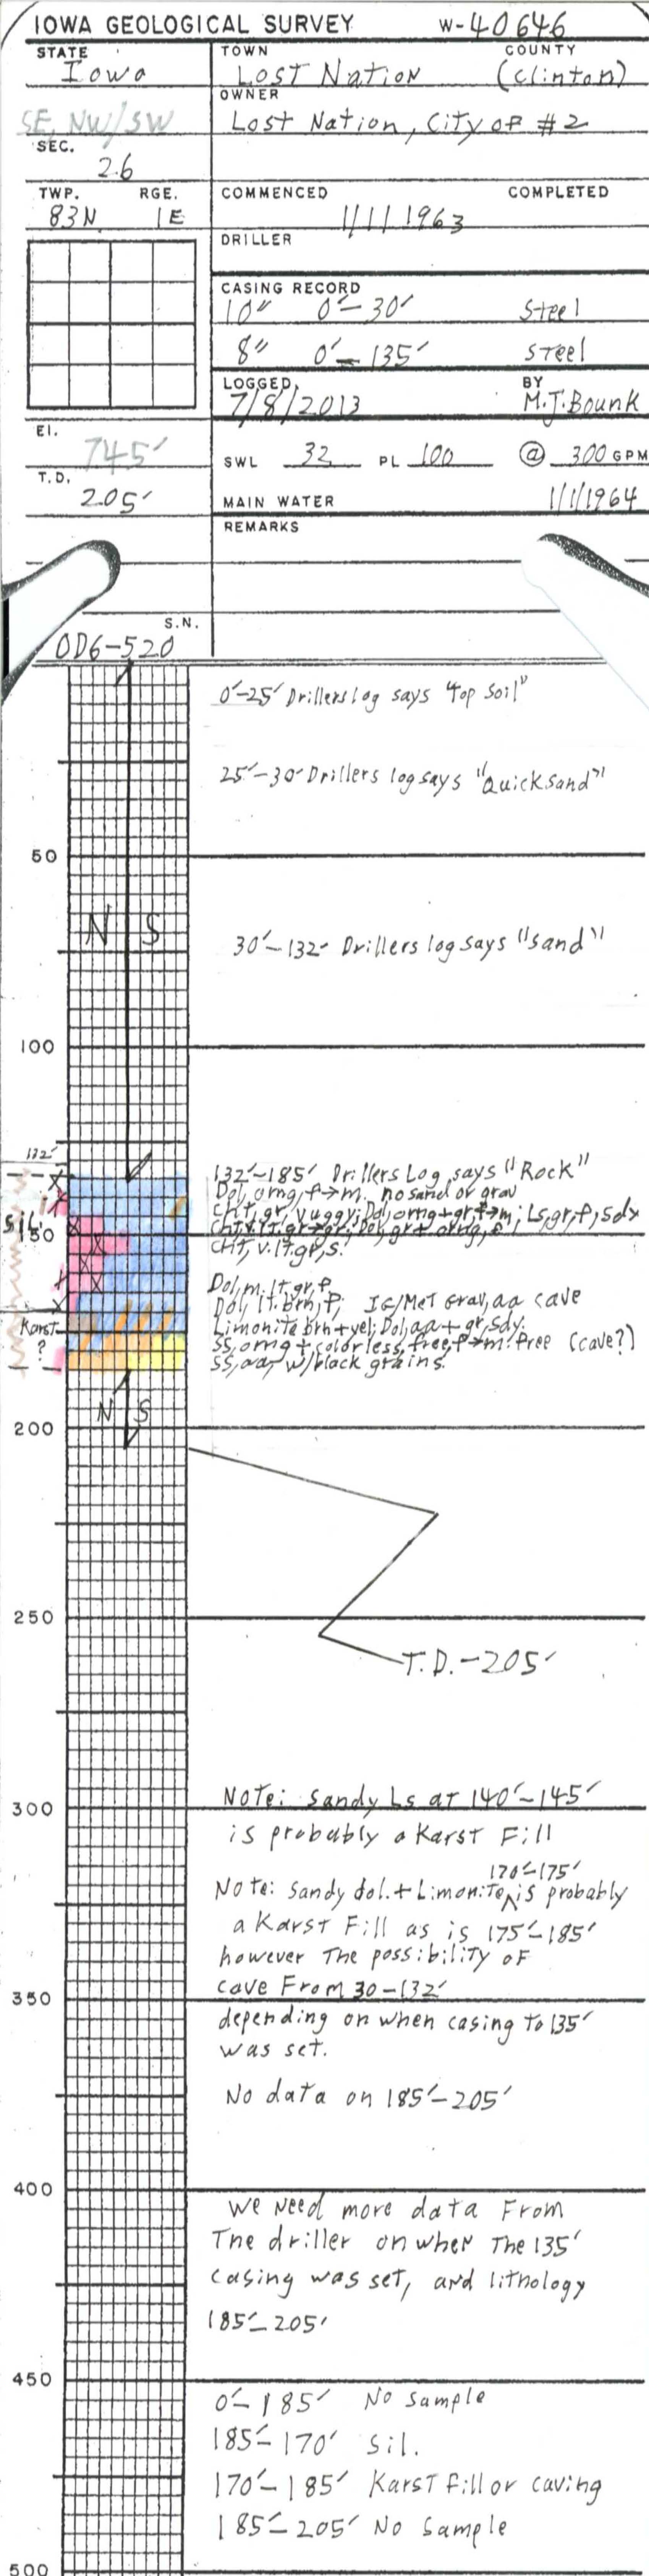 IOWA GEOLOGICAL SURVEY W-40646
STATE TOWN COUNTY
Iowa Lost Nation (Clinton)
OWNER
SE, NW/SW Lost Nation, City of #2
SEC.
26
TWP. RGE. COMMENCED COMPLETED
83N 1E 1/1/1963
DRILLER
CASING RECORD
10" 0'-30' Steel
8" 0'-135' Steel
LOGGED BY
7/8/2013 M.J.Bounk
El.
745' SWL 32 PL 100 @ 300 GPM
T.D.
205' MAIN WATER 1/1/1964
REMARKS
S.N.
OD6-520
0'-25' Drillers log says "Top Soil"
25'-30' Drillers log says "Quicksand"
50
N S
30'-132' Drillers log says "sand"
100
132'
132'-185' Drillers Log says "Rock"
Dol, orng, f→m. no sand or grav
Cht, gr, vuggy; Dol, orng+gr f→m; Ls, gr, f, sdx
SIL.
150
Cht, v.lt.gr→gr; Dol, gr+ orng, f
Cht, v.lt.gr, s.
Dol, m.lt.gr, f
Dol, lt.brn, f; IG/Met Grav, aa cave
Karst
?
Limonite brn+yel; Dol, aa+gr, sdy.
SS, orng+colorless, free, f→m. free (cave?)
SS, aa, w/black grains.
N S
200
250
T.D.-205'
Note: Sandy Ls at 140'-145'
300
is probably a Karst Fill
170'-175'
Note: Sandy dol.+Limonite ^ is probably
a Karst Fill as is 175'-185'
however The possibility of
cave From 30-132'
350
depending on when casing to 135'
was set.
No data on 185'-205'
400
We Need more data From
The driller on when The 135'
casing was set, and lithology
185'-205'
450
0'-185' No Sample
185'-170' Sil.
170'-185' Karst fill or caving
185'-205' No Sample
500